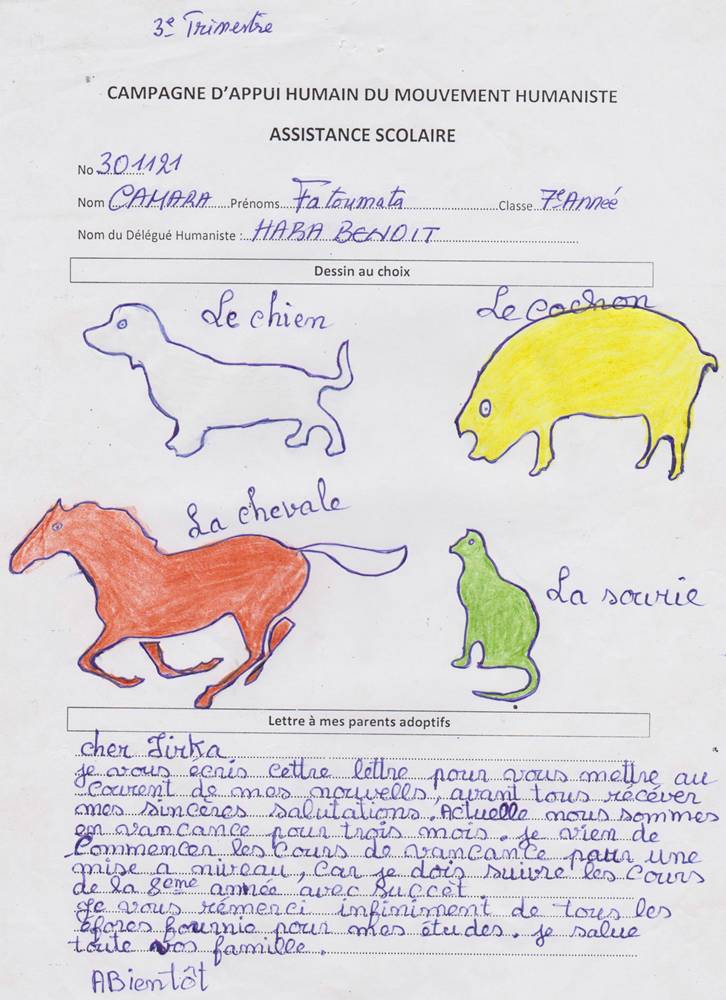 3e Trimestre
CAMPAGNE D'APPUI HUMAIN DU MOUVEMENT HUMANISTE
ASSISTANCE SCOLAIRE
No 301121
Nom CAMARA Prénoms Fatoumata Classe 7e Année
Nom du Délégué Humaniste : HABA BENOIT
Dessin au choix
Le chien
Le cochon
La chevale
La sourie
Lettre à mes parents adoptifs
cher Jirka
je vous écris cettre lettre pour vous mettre au
courent de mes nouvells, avant tous récéver
mes sincères salutations. Actuelle nous sommes
en vancance pour trois mois. je vien de
Commencer les cours de vancance pour une
mise a niveau, car je dois suivre les cours
de la 8eme année avec succèt
Je vous rémerci infiniment de tous les
éfores fournie pour mes études. je salue
toute vos famille.
ABientôt